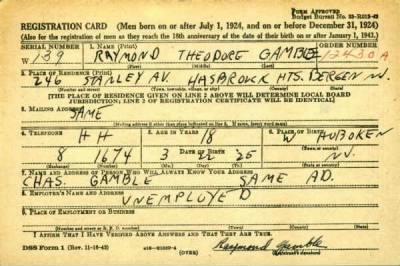 FORM APPROVED
Budget Bureau No. 33-R012-43
REGISTRATION CARD (Men born on or after July 1, 1924, and on or before December 31, 1924)
(Also for the registration of men as they reach the 18th anniversary of the date of their birth on or after January 1, 1943.)
SERIAL NUMBER 1. NAME (Print) ORDER NUMBER
W 139 RAYMOND THEODORE GAMBLE 12430A
(First) (Middle) (Last)
2. PLACE OF RESIDENCE (Print)
246 STANLEY AV. HASBROUCK HTS. BERGEN N.J.
(Number and street) (Town, township, village, or city) (County) (State)
[THE PLACE OF RESIDENCE GIVEN ON LINE 2 ABOVE WILL DETERMINE LOCAL BOARD
JURISDICTION; LINE 2 OF REGISTRATION CERTIFICATE WILL BE IDENTICAL]
3. MAILING ADDRESS
SAME
[Mailing address if other than place indicated on line 2. If same, insert word same]
4. TELEPHONE 5. AGE IN YEARS 6. PLACE OF BIRTH
H H 18 HOBOKEN
DATE OF BIRTH (Town or county)
8 1674 3 22 25 N.J.
(Exchange) (Number) (Mo.) (Day) (Yr.) (State or country)
7. NAME AND ADDRESS OF PERSON WHO WILL ALWAYS KNOW YOUR ADDRESS
CHAS. GAMBLE SAME AD.
8. EMPLOYER'S NAME AND ADDRESS
UNEMPLOYED
9. PLACE OF EMPLOYMENT OR BUSINESS
(Number and street or R. F. D. number) (Town) (County) (State)
I AFFIRM THAT I HAVE VERIFIED ABOVE ANSWERS AND THAT THEY ARE TRUE.
DSS Form 1 (Rev. 11-16-42) (OVER) Raymond Gamble
(Registrant's signature)